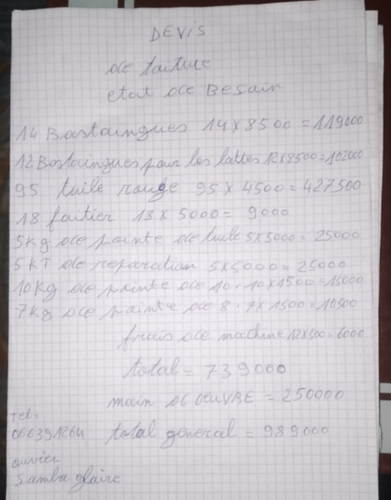 DEVIS
de toiture
etat de Besain
14 Bastaingues 14 x 8500 = 119000
12 Bastaingues pour les lattes 12x8500=102000
95 tuile rouge 95 x 4500 = 427500
18 faitier 18 x 5000 = 9000
5kg de pointe de tuile 5x5000 = 25000
5 KT de reparation 5x5000 = 25000
10kg de pointe de 10 . 10x1500 = 15000
7kg de pointe de 8 . 7x1500 = 10500
frais de machine 12x500 = 6000
total = 739000
main d'OEUVRE = 250000
Tel:
total general = 989000
ouvier
samba glaire